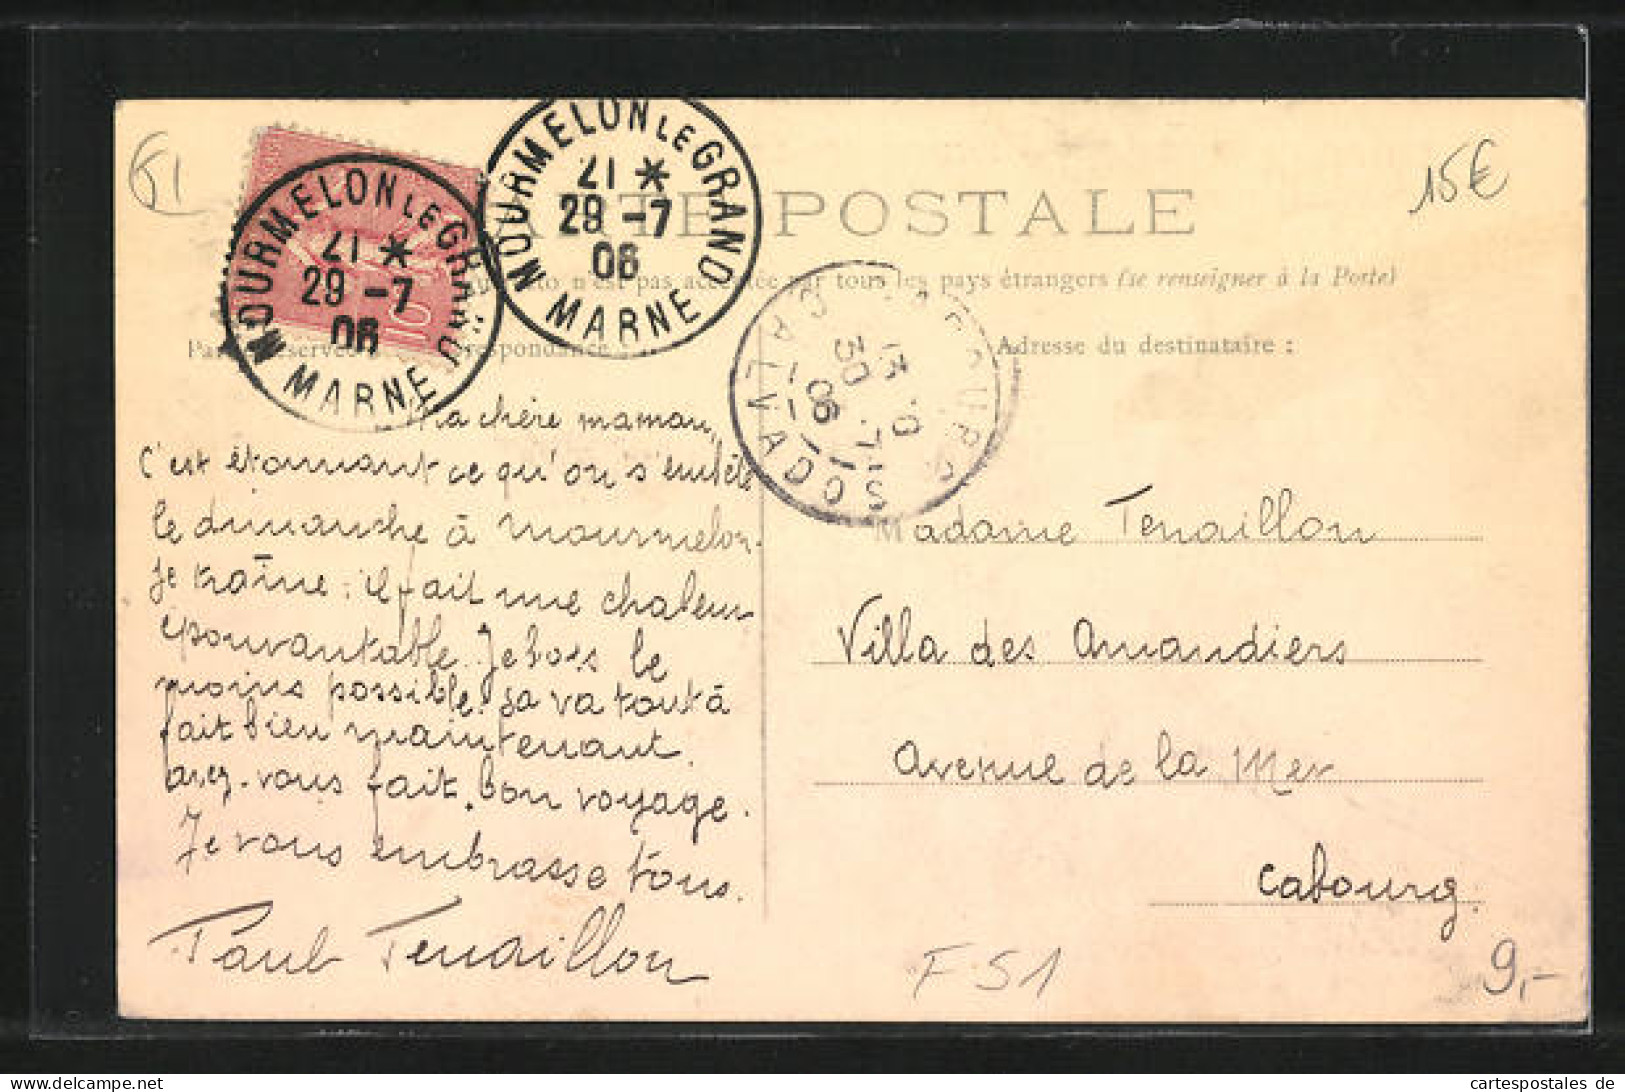 51
15€
NOURMELON LE GRAND
21 *
29 -7
06
MARNE
MOURMELON LE GRAND
21 *
29 -7
06
MARNE
TE POSTALE
to n'est pas acceptée par tous les pays étrangers (se renseigner à la Poste)
Adresse du destinataire :
30 -7
06
CALVADOS
Ma chère maman,
C'est étonnant ce qu'on s'embête
le dimanche à Mourmelon.
Je traîne : il fait une chaleur
épouvantable. Je bois le
moins possible. ça va tout à
fait bien maintenant.
avez-vous fait bon voyage.
Je vous embrasse tous.
Paul Tenaillon
Madame Tenaillon
Villa des Amandiers
Avenue de la Mer
Cabourg.
F 51
9,-
cartespostales de